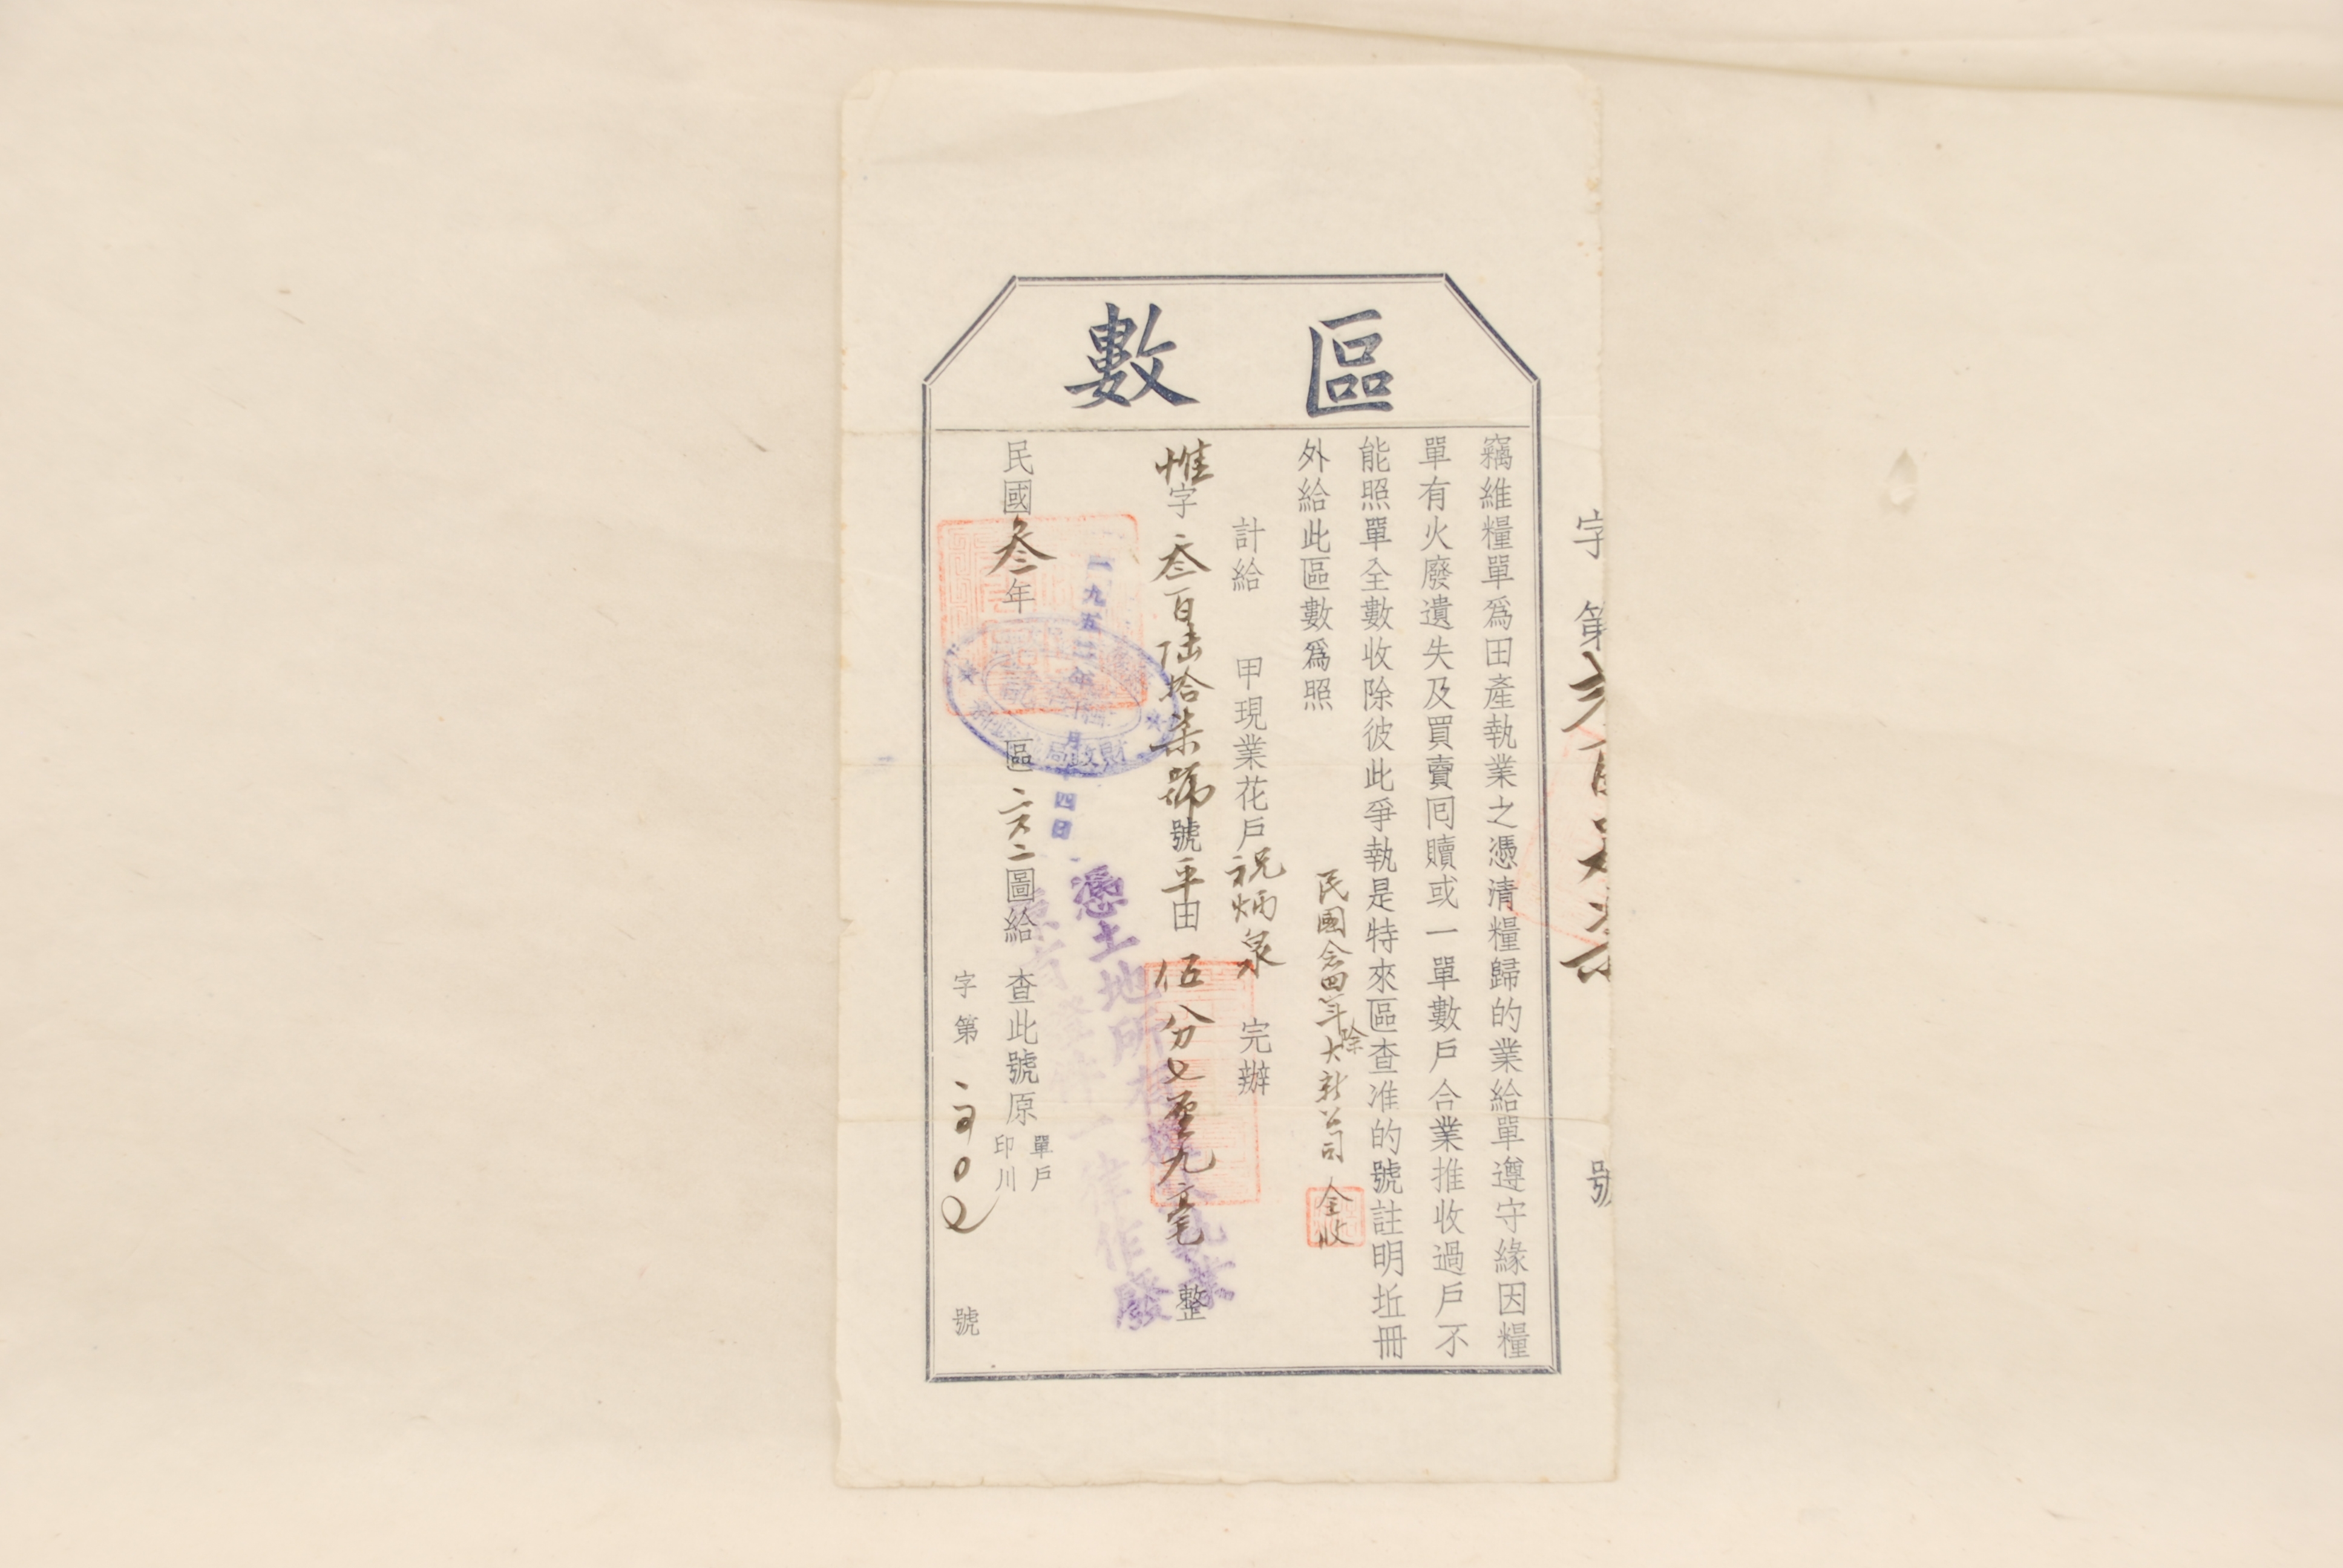 區數
字第 號
竊維糧單爲田產執業之憑清糧歸的業給單遵守緣因糧
單有火廢遺失及買賣囘贖或一單數戶合業推收過戶不
能照單全數收除彼此爭執是特來區查准的號註明坵冊
外給此區數爲照
民國念四年除大新公司全收
計給 甲現業花戶祝炳泉 完辦
惟字叁百陸拾柒號號平由 伍分七厘九毫 整
憑土地所有權 執業
一律作廢
一九五二年 月 四日
財政局
民國叁年 區 圖給 查此號原單戶印川
字第 號